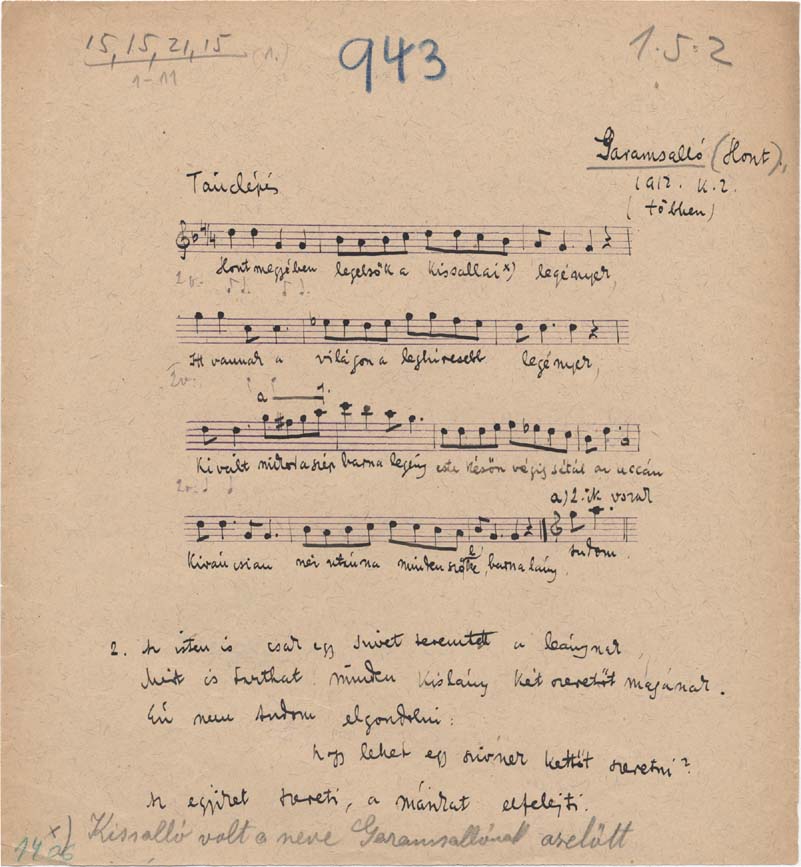 15, 15, 21, 15 (1.)
1-11
943
1.5.2
Garamsalló (Hont),
1912. K. 2.
(többen)
Tánclépés
Hont megyében legelsők a kissallai x) legények,
2v.
Itt vannak a világon a leghíresebb legények,
2v.
a
Kivált mikor a szép barna legény este későn végig sétál az uccán
2v.
a) 2.ik vszak
Kiváncsian néz utánna minden szőke, barna lány.
tudom
2. Az isten is csak egy szivet teremtett a leánynak,
Mért is tarthat minden kislány két szeretőt magának.
Én nem tudom elgondolni:
hogy lehet egy szivnek kettőt szeretni?
Az egyiket szereti, a másikat elfelejti.
x) Kissalló volt a neve Garamsallónak azelőtt